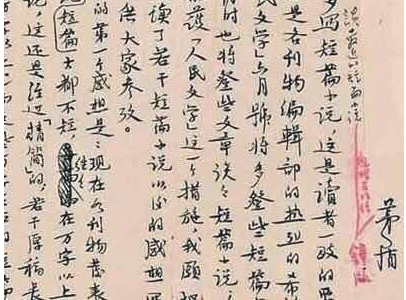 谈最近的短篇小说
茅盾
多写短篇小说，这是读者一致的
是各刊物编辑部的热烈的希
民文学》七月号将多登些短篇
时也将登些文章谈谈短篇小说，
护《人民文学》这一个措施，我愿把
读了若干短篇小说以后的感想写
供大家参考。
的第一个感想是：现在各刊物发表
短篇大都不短，往往在万字以上
说，这还是经过"精简"的，若干原稿长